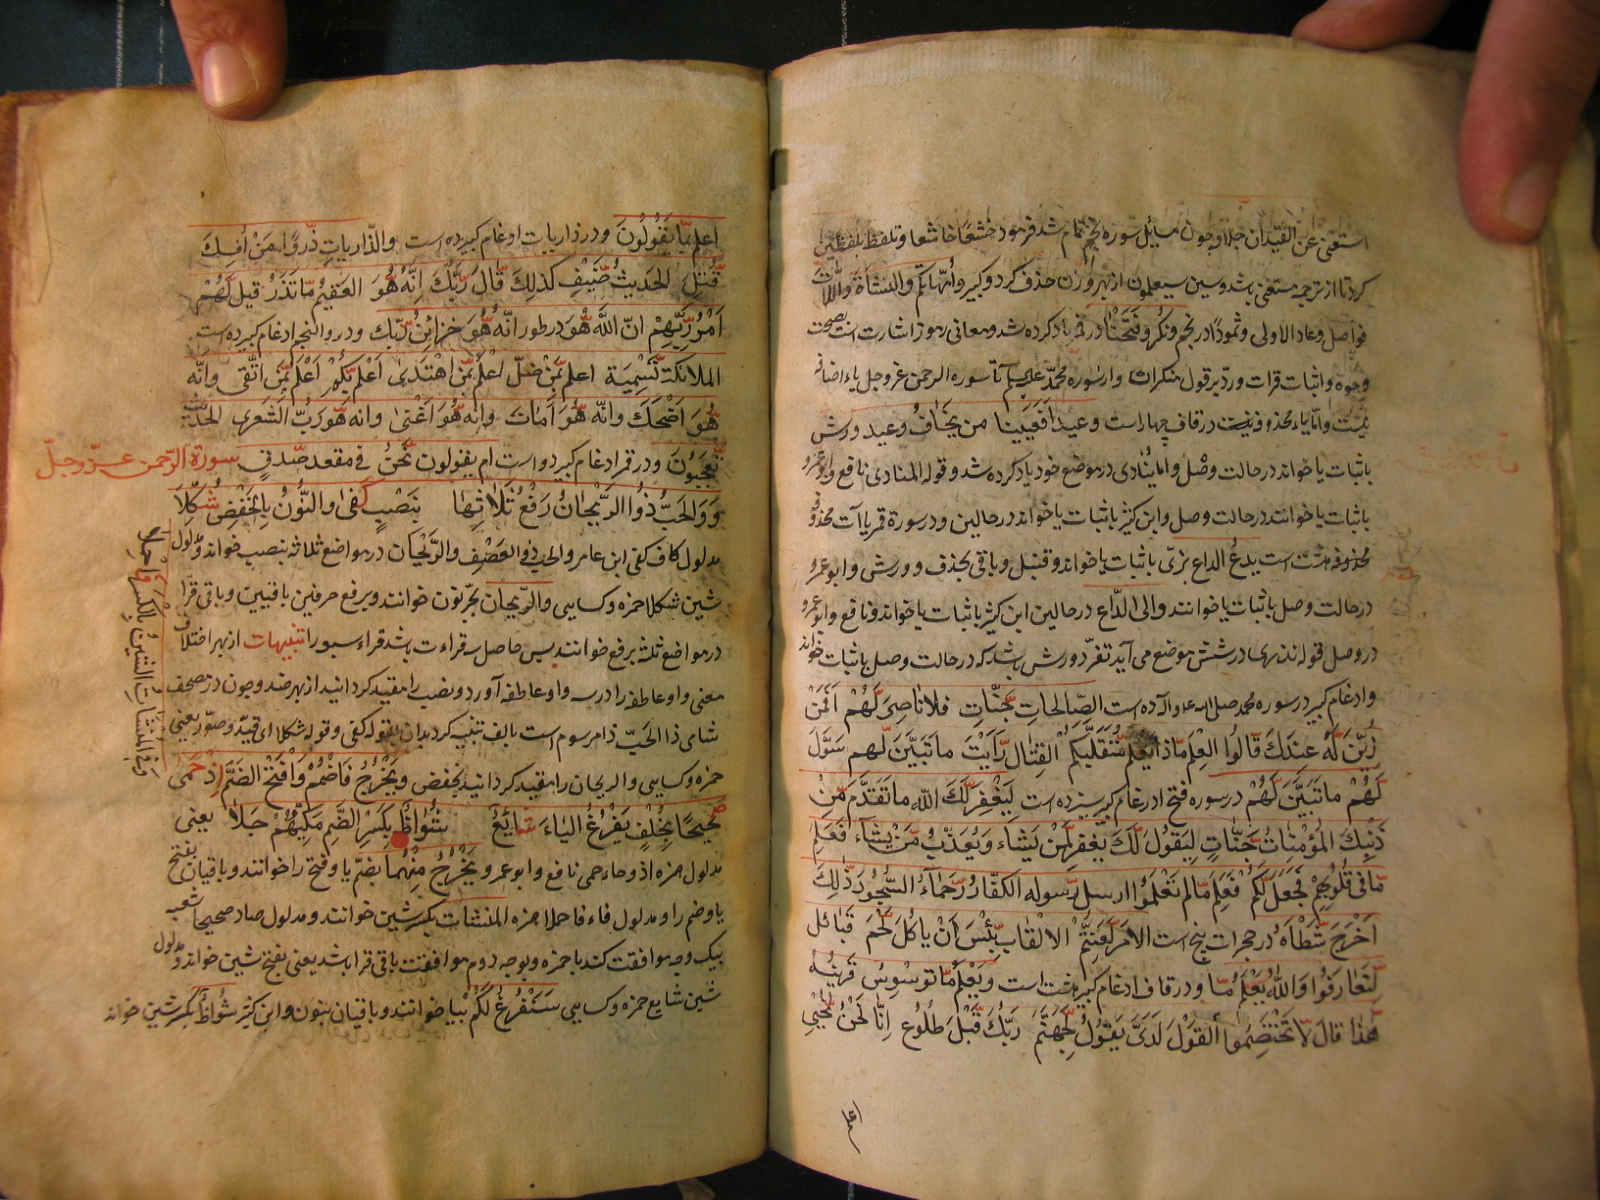 استغنی عن القیدان جلا وچون مسایل سوره نجم تمام شد فرمود خشعا خاشعا وتلفظ بلفظین
کرد تا از ترجمه مستغنی باشد وسین سیعلمون از بهر وزن حذف کرد وکبیر وامهاتکم والنشأة واللات
فواصل وعاد الاولی وثمودا در نجم ونکر وفتحنا در یاد کرده شد ومعانی رموز اشارت است بصحت
وجوه واثبات قرات ورد بر قول منکران واز سوره محمد علیه السلام تا سوره الرحمن عز وجل یاء اضافه
نیست وامّا یاء محذوفه در قاف چهار است وعید افعیینا من یخاف وعید ورش
باثبات یا خواند در حالت وصل واما ینادی در موضع خود یاد کرده شد وقوله المنادی نافع وابوعمرو
باثبات یا خوانند در حالت وصل وابن کثیر باثبات یا خواند در حالین ودر سورة قمر یاآت محذوفه
محذوفه هشت است یدع الداع بزی باثبات یا خواند وقنبل وباقی بحذف وورش وابوعمرو
در حالت وصل باثبات یا خوانند والی الدّاع در حالین ابن کثیر باثبات یا خواند ونافع وابوعمرو
در وصل قوله نذری در شش موضع می آید تفرد ورش باشد که در حالت وصل باثبات خواند
وادغام کبیر در سوره محمد صلی الله علیه وآله ده است الصّالحات جّنّات فلا ناصر لّهم افمن
زیّن لّه عندک قالوا العلم مّاذا یعلم مّتقلبکم القتال رّأیت ما تبیّن لهم سوّل
لّهم ما تبیّن لّهم در سوره فتح ادغام کبیر سیزده است لیغفر لّک الله ما تقدّم من
ذنبک المؤمنات جّنّات لیقول لّک یغفر لّمن یشاء ویعذّب مّن یشاء فعلم
مّا فی قلوبهم فجعل لّکم فعلم مّا لم تعلموا ارسل رّسوله الکفّار رّحماء السّجود ذّلک
اخرج شّطأه در حجرات پنج است الامر لّعنتّم الالقاب بّئس ان یأکل لّحم قبائل
لّتعارفوا والله یعلم مّا ودر قاف ادغام کبیر هشت است ویعلم مّا توسوس قرینه
هّذا قال لّا تختصموا القول لّدیّ یقول لّجهنّم ربّک قّبل طلوع انّا نحن نّحیی
اعلم بّما یقولون ودر ذاریات ادغام کبیر ده است والذّاریات ذّروًا من افک
قّتل الحدیث ضّیف کذلک قّال ربّک انّه هّو العقیم مّا تذر قیل لّهم
امر ربّهم انّ الله هّو در طور انّه هّو خزائن رّبّک ودر والنجم ادغام کبیر ده است
الملائکة تّسمیة اعلم بّمن ضلّ اعلم بّمن اهتدی اعلم بّکم اعلم بّمن اتّقی وانّه
هّو اضحک وانّه هّو امات وانه هّو اغنی وانه هّو ربّ الشعری الحدیث
تّعجبون ودر قمر ادغام کبیر دو است ام یقولون نّحن فی مقعد صّدق سورة الرّحمن عزّ وجلّ
ووالحبّ ذوا الرّیحان رفع ثلاثها بنصب کفی والنّون بالخفض شکّلا
مدلول کاف کفی ابن عامر والحبّ ذو العصف والرّیحان در مواضع ثلاثه بنصب خواند ومدلول
شین شکلا حمزه وکسایی والرّیحان بجر نون خوانند وبرفع حرفین باقیین وباقی قرا
در مواضع ثلثه برفع خوانند پس حاصل سه قراءت باشد قراء سبعه را تنبیهات از بهر اختلاف
معنی واو عاطفه را در سه واو عاطفه آورد ونصب را مقید کردانید از بهر ضد وچون در مصحف
شامی ذا الحبّ ذا مرسوم است بالف تنبیه کرد بدان بقوله کفی وقوله شکلا ای قیّد وصوّر یعنی
حمزه وکسایی والریحان را مقید کردانید بخفض ویخرج فاضمم وافتح الضمّ اذ حمی
صحیحا بخلف یفرغ الیاء شایع شواظ بکسر الضم مکیّهم جلا یعنی
مدلول همزه اذ وحاء حمی نافع وابوعمرو یخرج منهما بضمّ یا وفتح را خوانند وباقیان بفتح
یا وضم را ومدلول فاء فاحملا حمزه المنشئات بکسر شین خوانند ومدلول صاد صحیحا شعبه
بیک وجه موافقت کند با حمزه وبوجه دوم موافقت باقی قرا باشد یعنی بفتح شین خواند ومدلول
شین شایع حمزه وکسایی سنفرغ لکم بیا خوانند وباقیان بنون وابن کثیر شواظ بکسر شین خواند
وفی المنشئات الشین بالکسر فاحملا